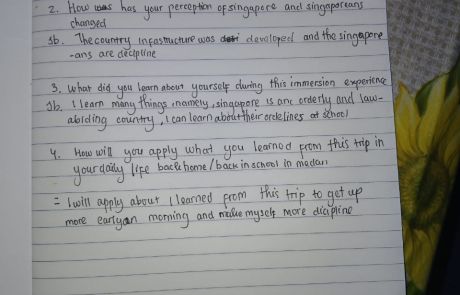 2. How was has your perception of singapore and singaporeans
changed
Jb. The country infastructure was developed and the singapore
-ans are decipline
3. What did you learn about yourself during this immersion experience
Jb. I learn many things, namely, singapore is an orderly and law-
abiding country, I can learn about their at school
4. How will you apply what you learned from this trip in
your daily life back home/back in school in madan
= I will apply about I learned from this trip to get up
more early on morning and make myself more dicipline